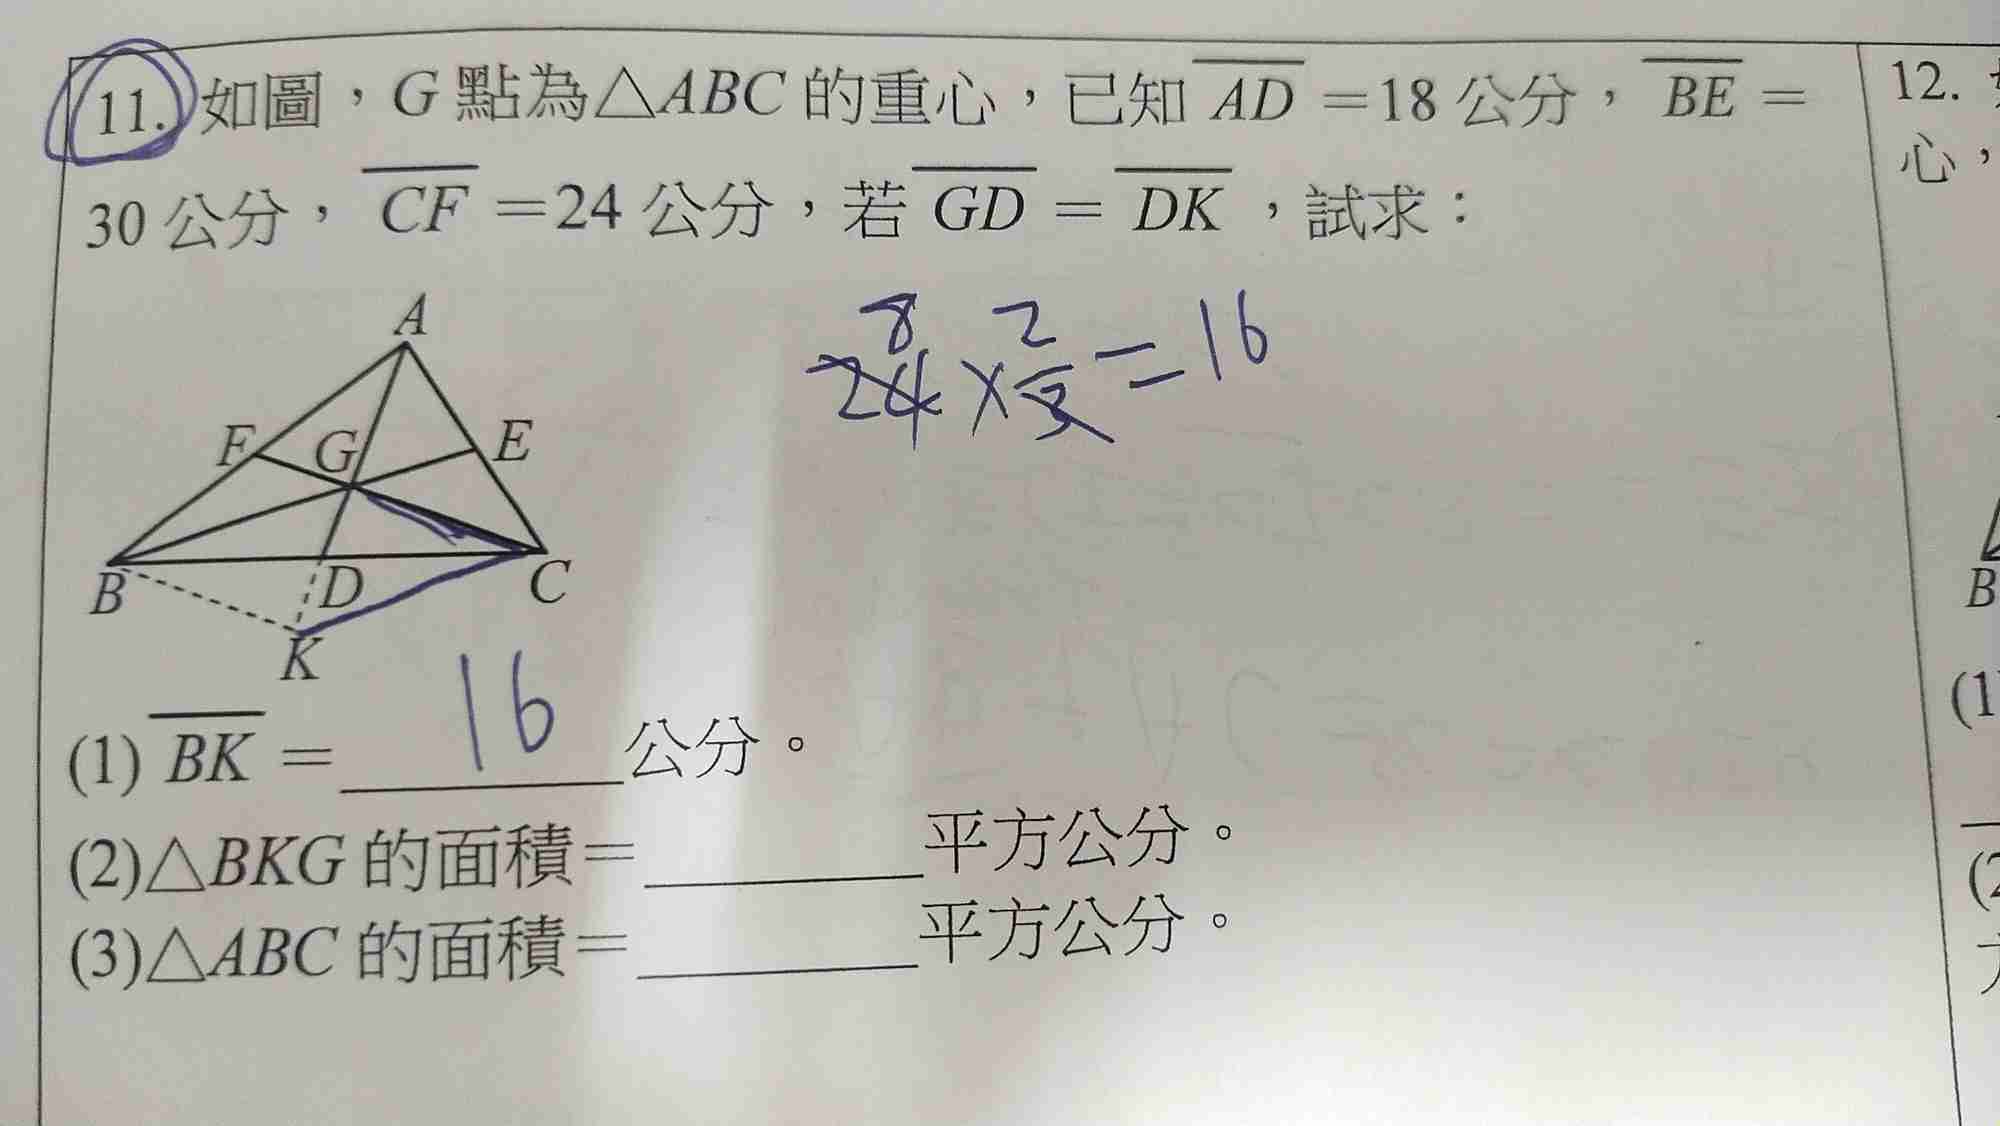 11. 如圖，G 點為△ABC 的重心，已知 AD =18 公分， BE =
30 公分， CF =24 公分，若 GD = DK ，試求：
A
F
G
E
B
D
C
K
8 2
24 × 3 = 16
(1) BK = 16 公分。
(2)△BKG 的面積= 平方公分。
(3)△ABC 的面積= 平方公分。
12.
心，
B
(1
(2